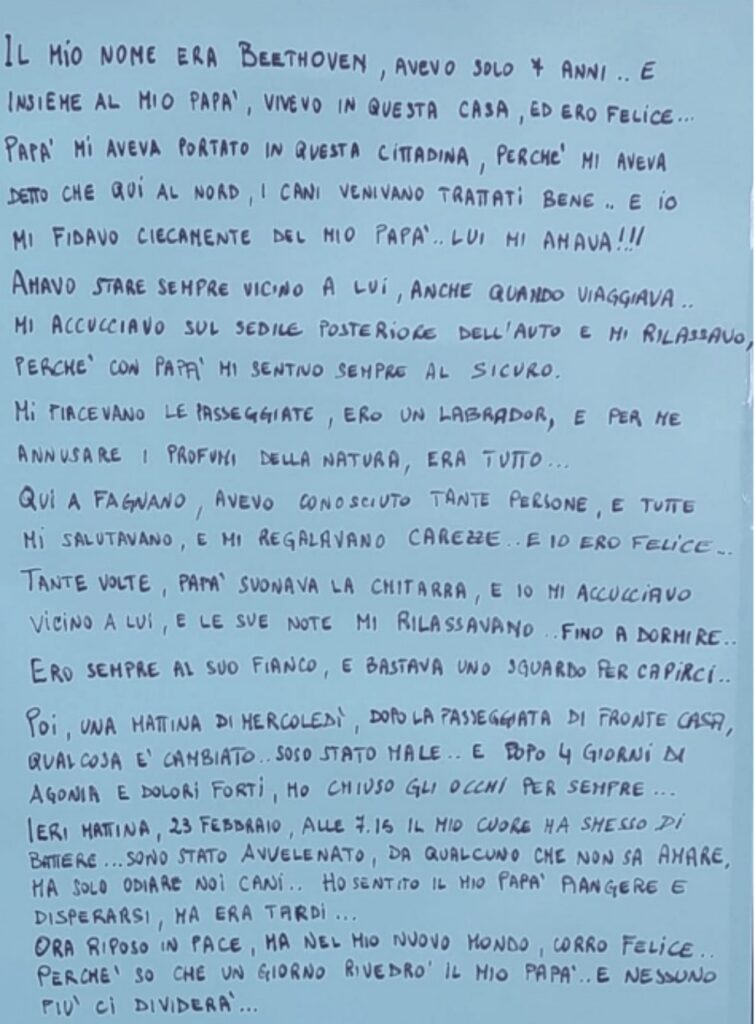 IL MIO NOME ERA BEETHOVEN, AVEVO SOLO 7 ANNI.. E
INSIEME AL MIO PAPA', VIVEVO IN QUESTA CASA, ED ERO FELICE...
PAPA' MI AVEVA PORTATO IN QUESTA CITTADINA, PERCHE' MI AVEVA
DETTO CHE QUI AL NORD, I CANI VENIVANO TRATTATI BENE.. E IO
MI FIDAVO CIECAMENTE DEL MIO PAPA'.. LUI MI AMAVA!!!
AMAVO STARE SEMPRE VICINO A LUI, ANCHE QUANDO VIAGGIAVA..
MI ACCUCCIAVO SUL SEDILE POSTERIORE DELL'AUTO E MI RILASSAVO,
PERCHE' CON PAPA' MI SENTIVO SEMPRE AL SICURO.
MI PIACEVANO LE PASSEGGIATE, ERO UN LABRADOR, E PER ME
ANNUSARE I PROFUMI DELLA NATURA, ERA TUTTO...
QUI A FAGNANO, AVEVO CONOSCIUTO TANTE PERSONE, E TUTTE
MI SALUTAVANO, E MI REGALAVANO CAREZZE.. E IO ERO FELICE...
TANTE VOLTE, PAPA' SUONAVA LA CHITARRA, E IO MI ACCUCCIAVO
VICINO A LUI, E LE SUE NOTE MI RILASSAVANO.. FINO A DORMIRE..
ERO SEMPRE AL SUO FIANCO, E BASTAVA UNO SGUARDO PER CAPIRCI..
POI, UNA MATTINA DI MERCOLEDI', DOPO LA PASSEGGIATA DI FRONTE CASA,
QUALCOSA E' CAMBIATO.. SOSO STATO MALE.. E DOPO 4 GIORNI DI
AGONIA E DOLORI FORTI, HO CHIUSO GLI OCCHI PER SEMPRE...
IERI MATTINA, 23 FEBBRAIO, ALLE 7.15 IL MIO CUORE HA SMESSO DI
BATTERE... SONO STATO AVVELENATO, DA QUALCUNO CHE NON SA AMARE,
MA SOLO ODIARE NOI CANI.. HO SENTITO IL MIO PAPA' PIANGERE E
DISPERARSI, MA ERA TARDI...
ORA RIPOSO IN PACE, MA NEL MIO NUOVO MONDO, CORRO FELICE..
PERCHE' SO CHE UN GIORNO RIVEDRO' IL MIO PAPA'.. E NESSUNO
PIU' CI DIVIDERA'...